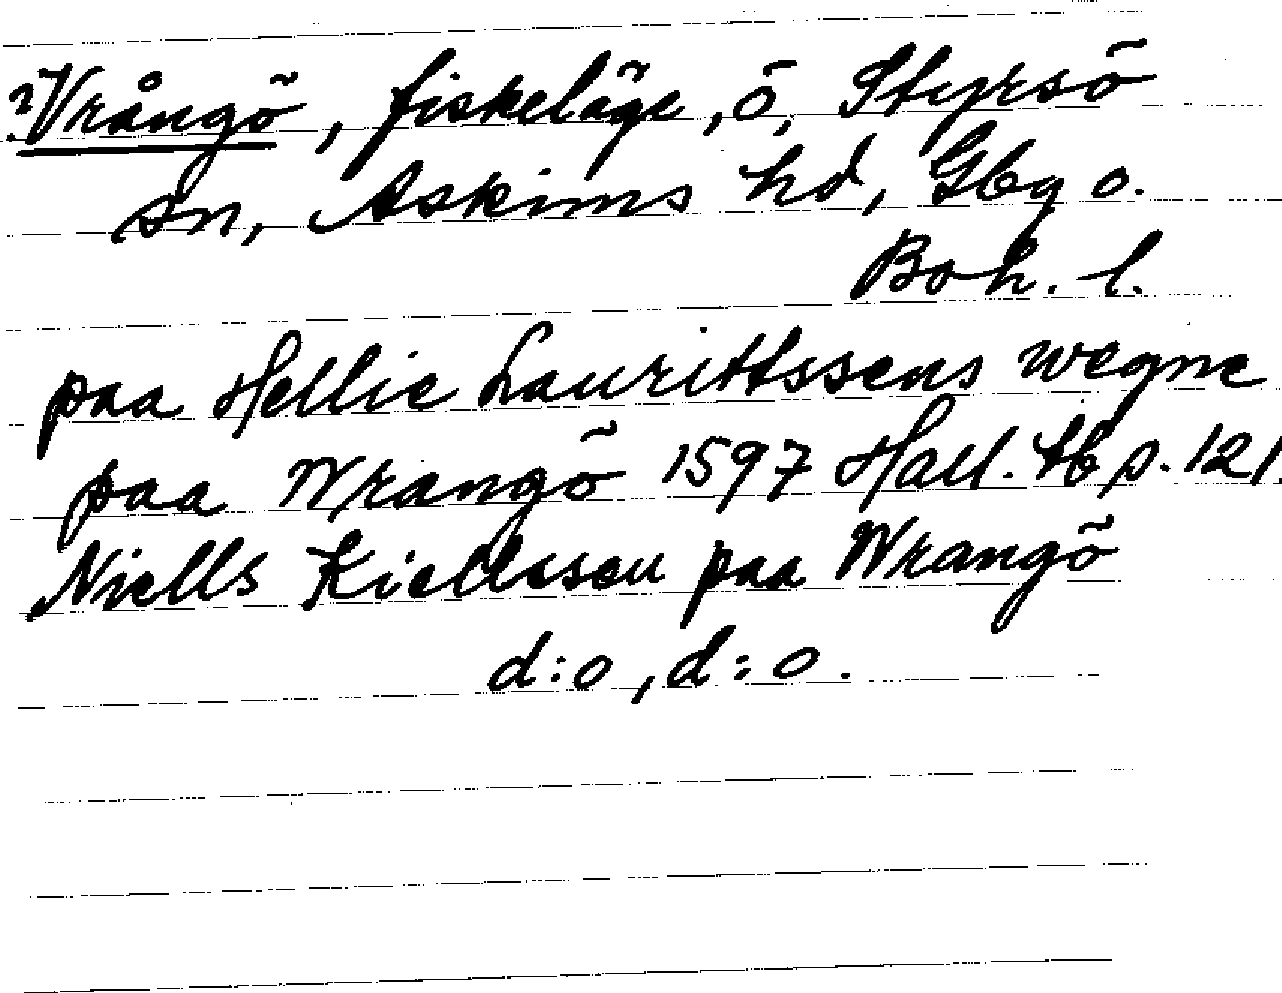 ?Vrångö, fiskeläge, ö, Styrsö
sn, Askims hd, Gbg o.
Boh. l.
paa Hellie Laurittssens wegne
paa Wrangö 1597 Hall. tb p. 121.
Niells Kiellssen paa Wrangö
d:o, d:o.